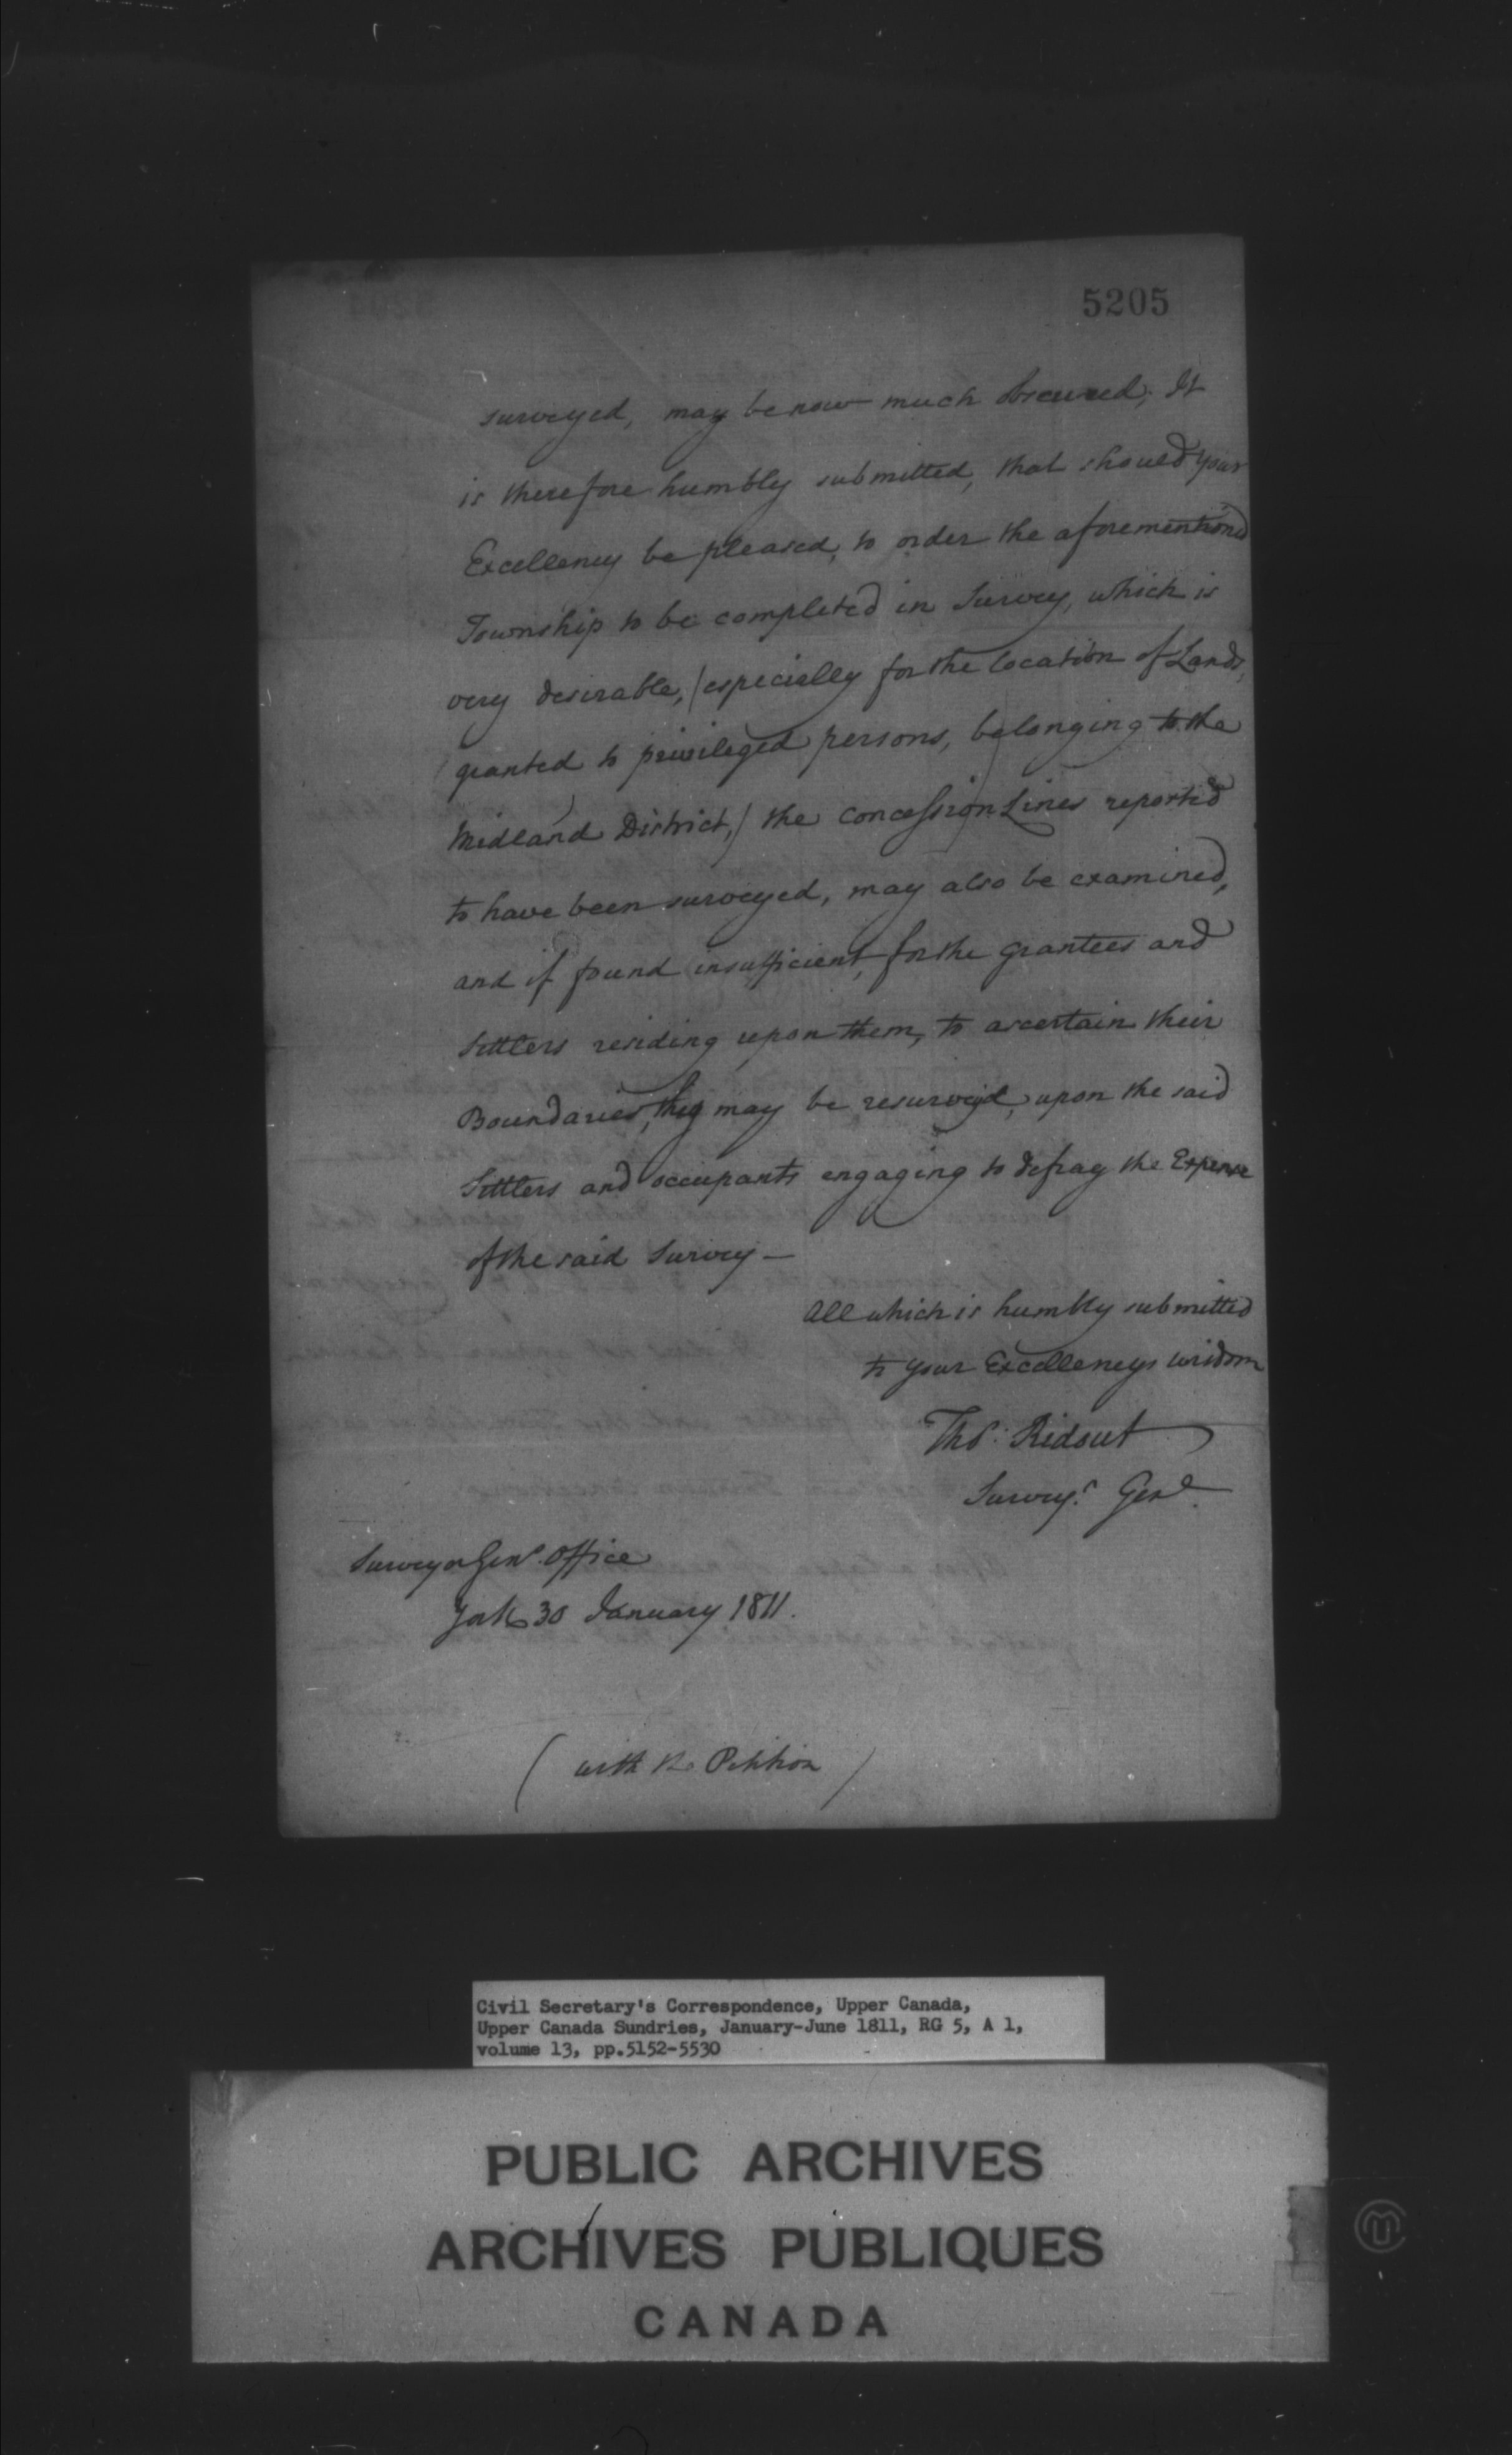 5205
surveyed, may be now much obscured; It
is therefore humbly submitted, that should your
Excellency be pleased, to order the aforementioned
Township to be completed in Survey, which is
very desirable, (especially for the location of Lands,
granted to privileged persons, belonging to the
Midland District,) the Concession Lines reported
to have been surveyed, may also be examined,
and if found insufficient, for the grantees and
Settlers residing upon them, to ascertain their
Boundaries, they may be resurveyed, upon the said
Settlers and occupants engaging to defray the Expense
of the said Survey —
All which is humbly submitted
to your Excellencys wisdom
Thos. Ridout
Surveyr. Genl.
Surveyor Genl. Office
York 30 January 1811.
(with the Petition)
Civil Secretary's Correspondence, Upper Canada,
Upper Canada Sundries, January-June 1811, RG 5, A 1,
volume 13, pp.5152-5530
PUBLIC ARCHIVES
ARCHIVES PUBLIQUES
CANADA